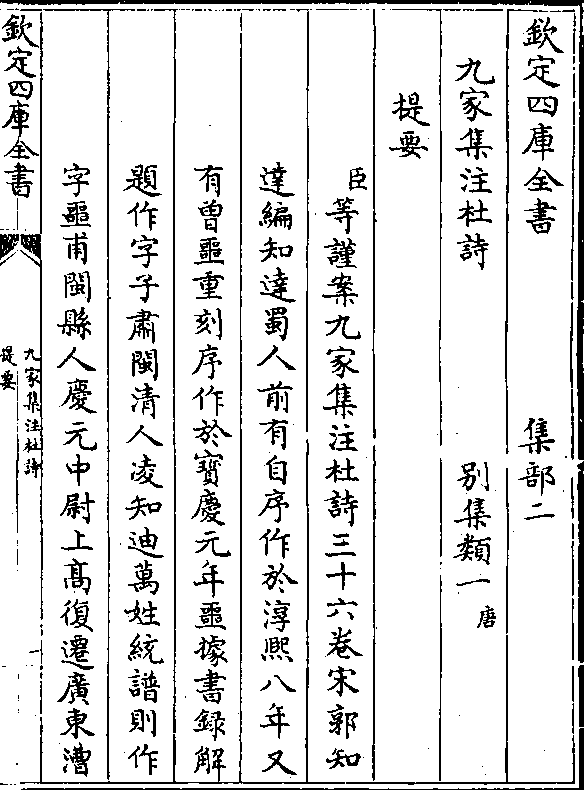 欽定四庫全書 集部二
九家集注杜詩 別集類一唐
提要
臣等謹案九家集注杜詩三十六卷宋郭知
達編知達蜀人前有自序作於淳熙八年又
有曽噩重刻序作於寳慶元年噩據書録解
題作字子肅閩清人凌知迪萬姓統譜則作
字噩甫閩縣人慶元中尉上髙復遷廣東漕
欽定四庫全書
九家集注杜詩
提要
一